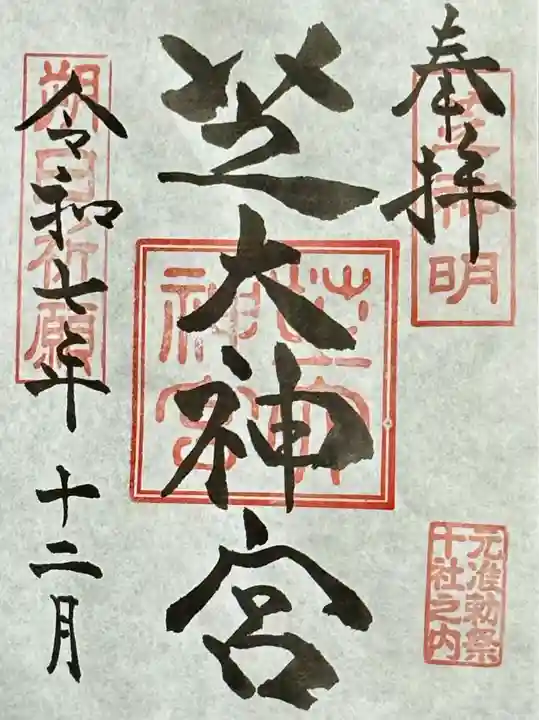 奉拝
芝神明
元准勅祭
十社之内
芝大神宮
芝大
神宮
朔日祈願
令和七年 十二月